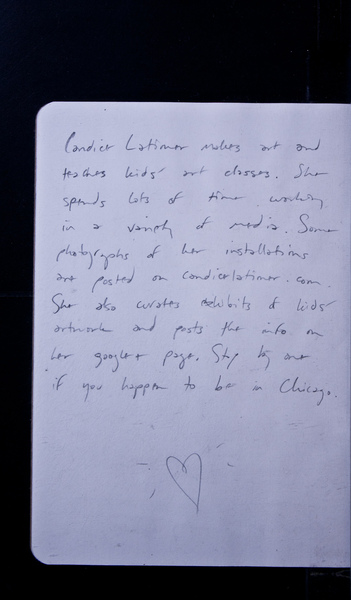 Candice Latimer makes art and
teaches kids' art classes. She
spends lots of time working
in a variety of media. Some
photographs of her installations
are posted on candicelatimer.com.
She also curates exhibits of kids'
artwork and posts the info on
her google+ page. Stop by one
if you happen to be in Chicago.